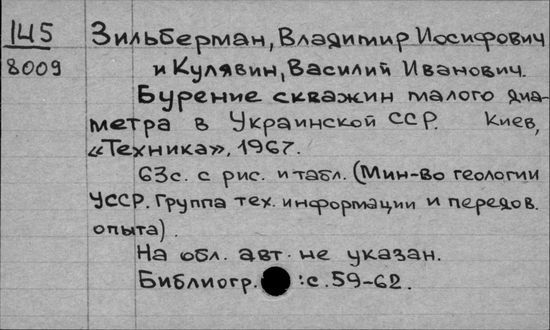 145 Зильберман, Владимир Иосифович
8009 и Кулявин, Василий Иванович.
Бурение скважин малого диа-
метра в Украинской ССР. Киев,
«Техника», 1967.
63с. с рис. и табл. (Мин-во геологии
УССР. Группа тех. информации и передов.
опыта).
На обл. авт. не указан.
Библиогр. : с. 59-62.